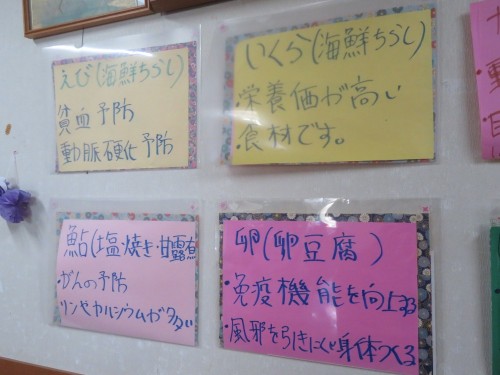 えび(海鮮ちらし)
貧血予防
動脈硬化予防
いくら(海鮮ちらし)
・栄養価が高い
食材です。
鮎(塩・焼き・甘露煮
・がんの予防
リンやカルシウムが多い
卵(卵豆腐)
・免疫機能を向上する
・風邪を引きにくい身体つくる